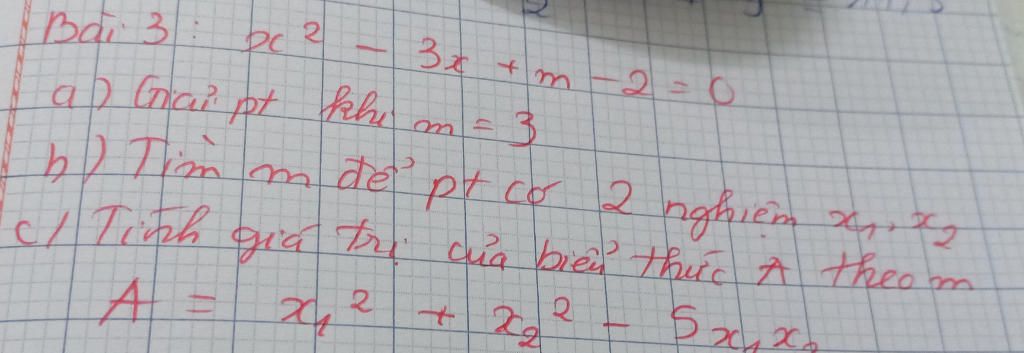 Bài 3: x² - 3x + m - 2 = 0
a) Giải pt khi m = 3
b) Tìm m để pt có 2 nghiệm x₁, x₂
c) Tính giá trị của biểu thức A theo m
A = x₁² + x₂² - 5x₁x₂